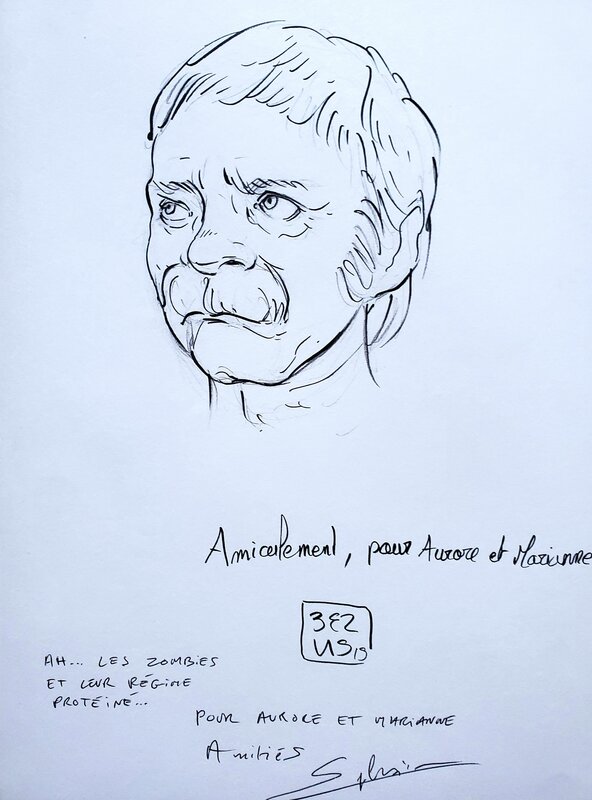 Amicalement, pour Aurore et Marianne
BEZ
US 19
AH... LES ZOMBIES
ET LEUR RÉGIME
PROTÉINÉ...
POUR AURORE ET MARIANNE
Amitiés
Sylvain